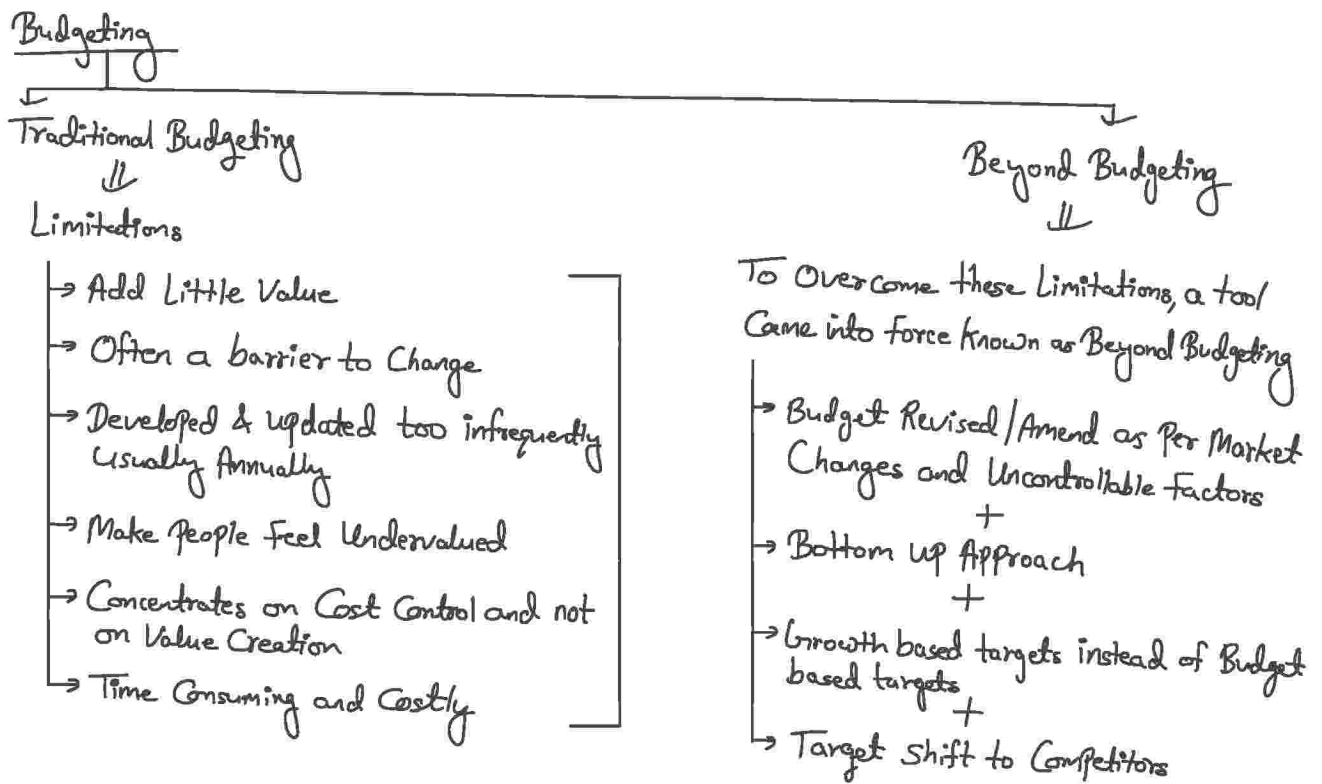 Budgeting
Traditional Budgeting
Limitations
→ Add Little Value
→ Often a barrier to Change
→ Developed & updated too infrequently
usually Annually
→ Make People Feel Undervalued
→ Concentrates on Cost Control and not
on Value Creation
→ Time Consuming and Costly
Beyond Budgeting
To Overcome these Limitations, a tool
Came into force known as Beyond Budgeting
→ Budget Revised/Amend as Per Market
Changes and Uncontrollable Factors
+
→ Bottom up Approach
+
→ Growth based targets instead of Budget
based targets
+
→ Target Shift to Competitors